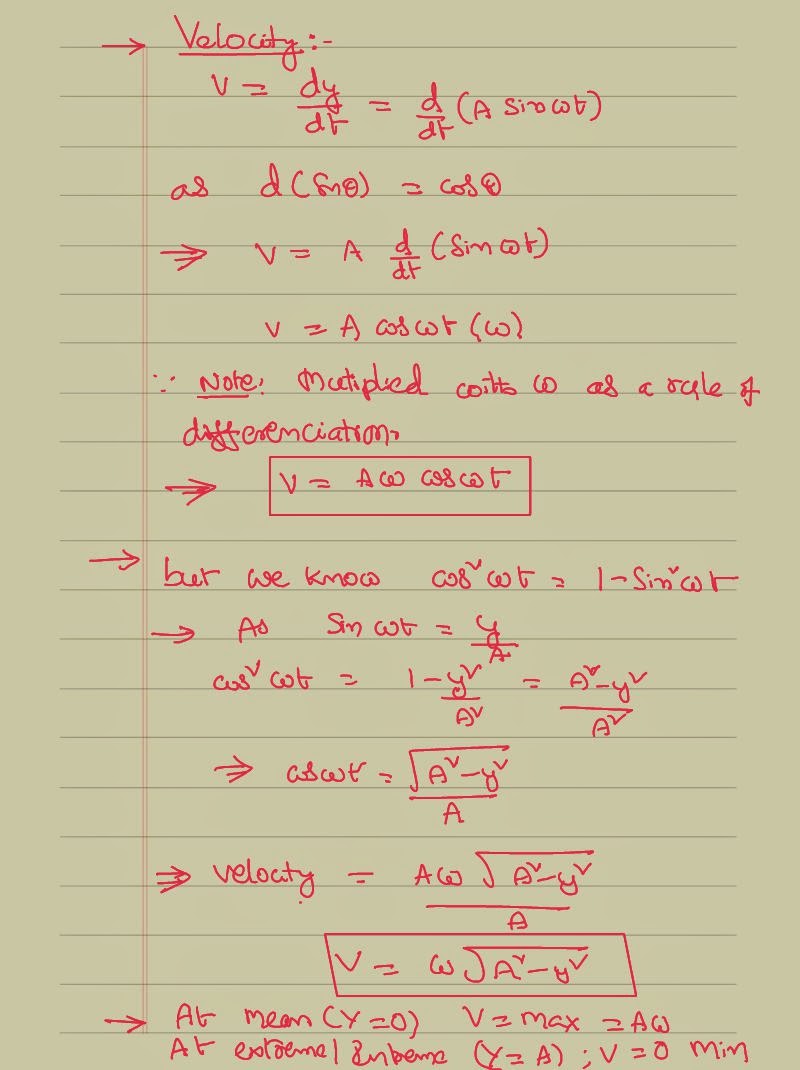 → Velocity:-
V = dy/dt = d/dt (A sin ωt)
as d(sinθ) = cosθ
⇒ V = A d/dt (sin ωt)
V = A cos ωt (ω)
∵ Note: Mutiplied with ω as a rule of
differenciation.
⇒ V = Aω cos ωt
→ but we know cos²ωt = 1 - Sin²ωt
→ As Sin ωt = y/A
cos² ωt = 1 - y²/A² = A² - y²/A²
⇒ cos ωt = √A² - y²/A
⇒ velocity = Aω √A² - y²/A
V = ω √A² - y²
→ At mean (Y = 0) V = max = Aω
At extreme (Y = A) ; V = 0 Min